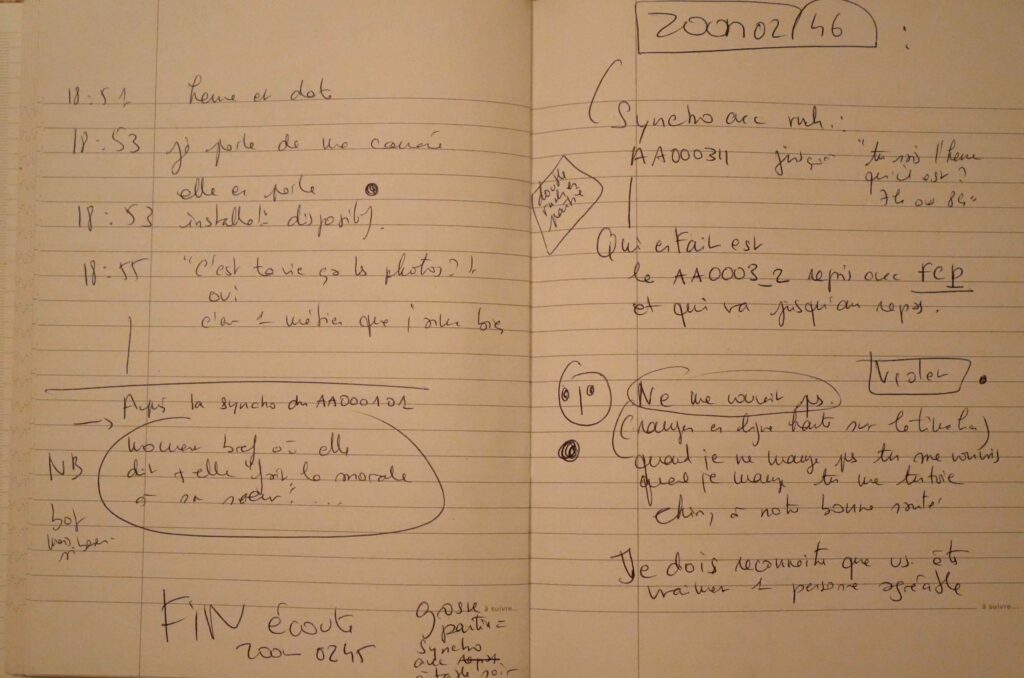 18:51 heure et date
18:53 je parle de ma caméra
elle en parle
18:53 installat° dispositif.
18:55 "C'est ta vie ça les photos?"
oui
c'est 1 métier que j'aime bien
Après la syncho du AA000101
NB
moment bref où elle
dit + elle "fait la morale
à sa soeur" ...
bof
FIN écoute
zoom 0245
grosse
partie =
Syncho
avec repas
à table soir
à suivre...
zoom 02/46 :
Syncho avec rush:
AA000311 jusqu'à "tu sais l'heure
qu'il est?
7h ou 8h"
double
rush en
partie
Qui en Fait est
le AA0003_2 repris avec fcp
et qui va jusqu'au repas.
Violet
Ne me vouvoie pas.
(ranger en ligne haute sur la timeline)
quand je ne mange pas tu me vouvoies
quand je mange tu me tutoies
Chin, à notre bonne santé
Je dois reconnaitre que vs êtes
vraiment 1 personne agréable
à suivre...